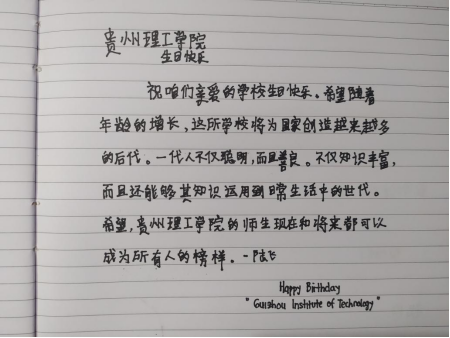 贵州理工学院
生日快乐
祝咱们亲爱的学校生日快乐。希望随着
年龄的增长，这所学校将为国家创造越来越多
的后代。一代人不仅聪明，而且善良。不仅知识丰富，
而且还能够其知识运用到日常生活中的世代。
希望，贵州理工学院的师生现在和将来都可以
成为所有人的榜样。-陆飞
Happy Birthday
"Guizhou Institute of Technology"